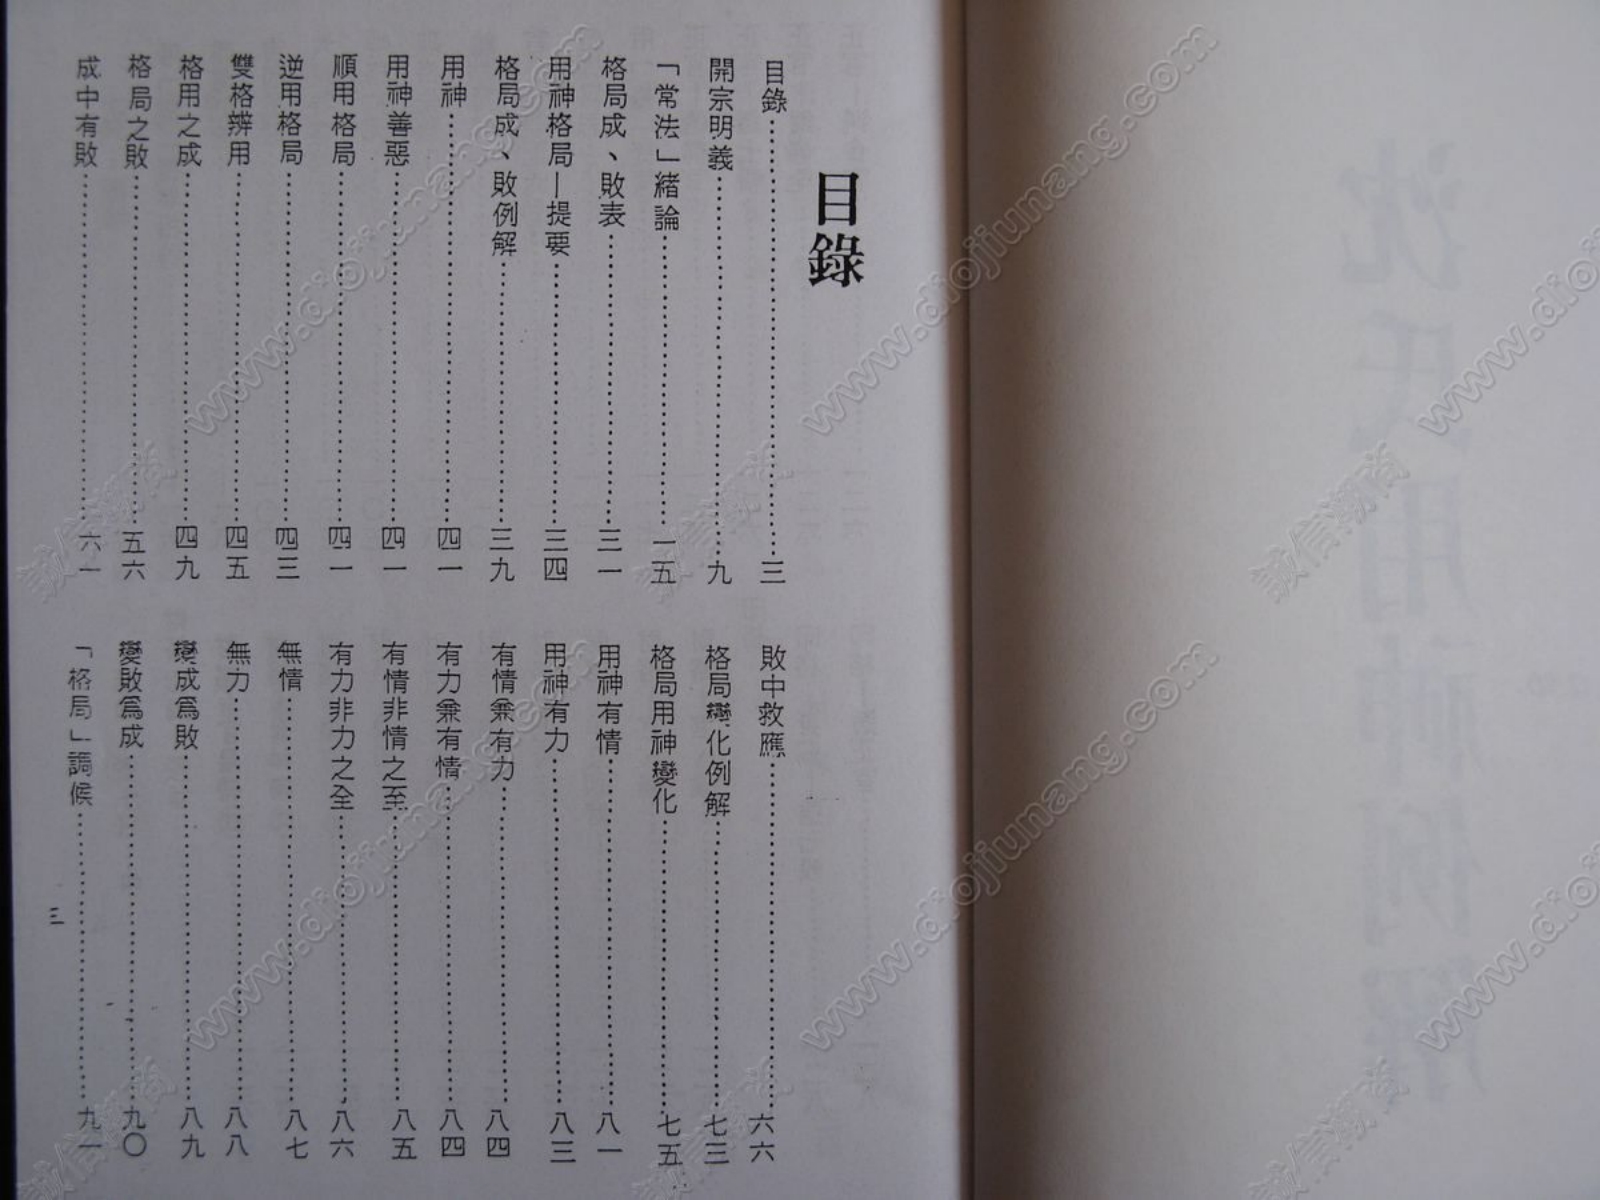 目錄
目錄…………三
開宗明義…………九
「常法」緒論…………一五
格局成、敗表…………三一
用神格局—提要…………三四
格局成、敗例解…………三九
用神…………四一
用神善惡…………四一
順用格局…………四一
逆用格局…………四三
雙格辨用…………四五
格用之成…………四九
格局之敗…………五六
成中有敗…………六一
敗中救應…………六六
格局變化例解…………七三
格局用神變化…………七五
用神有情…………八一
用神有力…………八三
有情兼有力…………八四
有力兼有情…………八四
有情非情之至…………八五
有力非力之全…………八六
無情…………八七
無力…………八八
變成爲敗…………八九
變敗爲成…………九〇
「格局」調候…………九一
三
沈氏用神例解
www.diojiunang.com